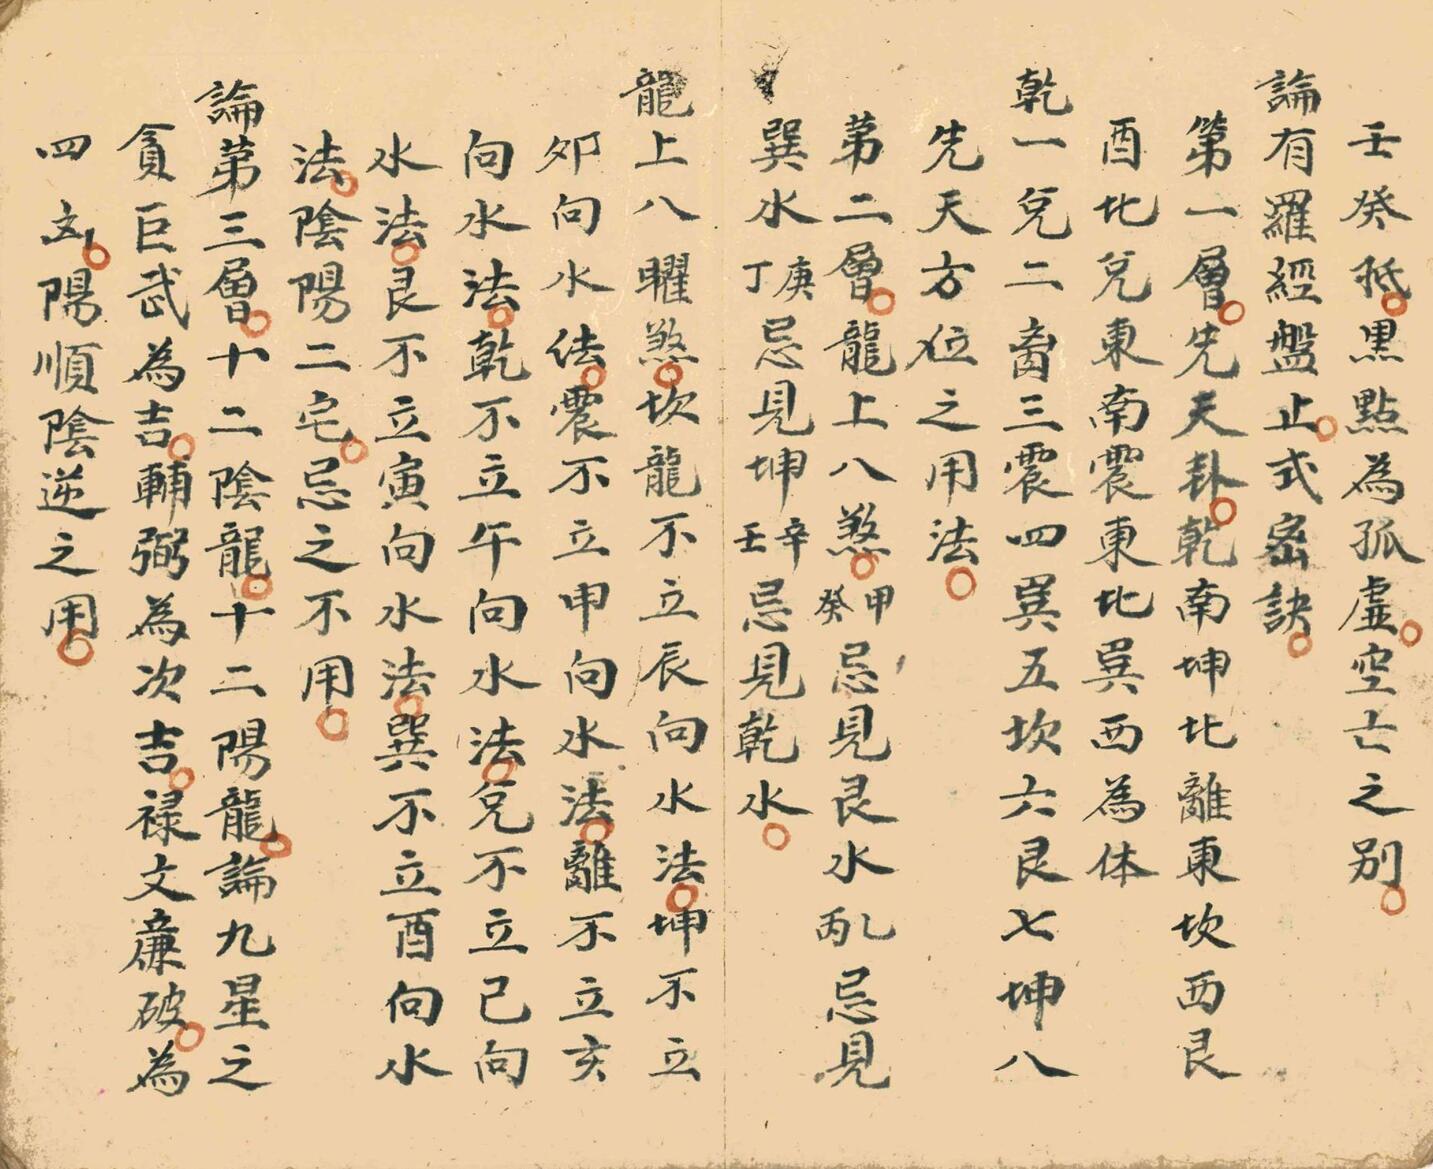 壬癸孤黑點為孤虛空亡之別
論有羅經盤止式密訣
第一層先天卦乾南坤北離東坎西艮
酉北兌東南震東北巽西為体
乾一兌二離三震四巽五坎六艮七坤八
先天方位之用法
第二層龍上八煞甲癸忌見艮水丙乚忌見
巽水庚丁忌見坤辛壬忌見乾水
龍上八曜煞坎龍不立辰向水法坤不立
夘向水法震不立申向水法離不立亥
向水法乾不立午向水法兌不立己向
水法艮不立寅向水法巽不立酉向水
法陰陽二宅忌之不用
論第三層十二陰龍十二陽龍論九星之
貪巨武為吉輔弼為次吉祿文廉破為
四凶陽順陰逆之用